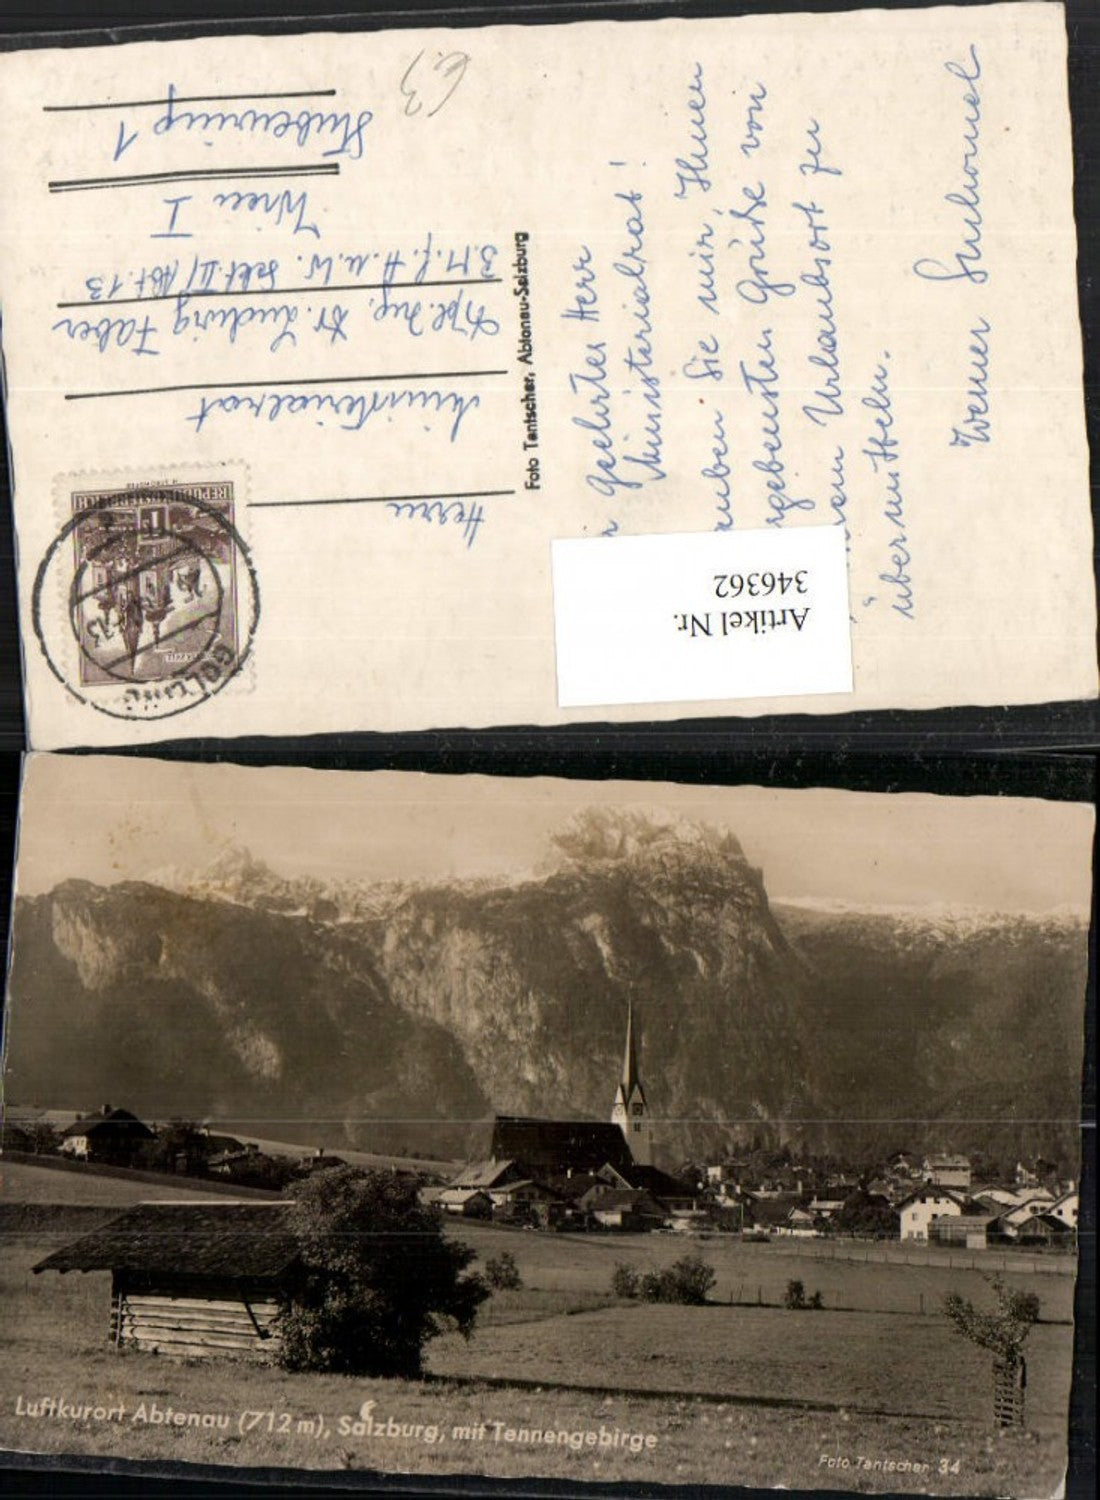 63
Sehr geehrter Herr
Ministerialrat!
Erlauben Sie mir, Ihnen
die ergebensten Grüße von
meinem Urlaubsort zu
übermitteln.
Werner Suchomel
Foto Tantscher, Abtenau-Salzburg
REPUBLIK ÖSTERREICH
1
GOLLING
Herrn
Ministerialrat
Dipl. Ing. Dr. Ludwig Faber
B.M.f. H.u.W. Sekt. II/Abt. 13
Wien I
Stubenring 1
Artikel Nr.
346362
Luftkurort Abtenau (712 m), Salzburg, mit Tennengebirge
Foto Tantscher 34